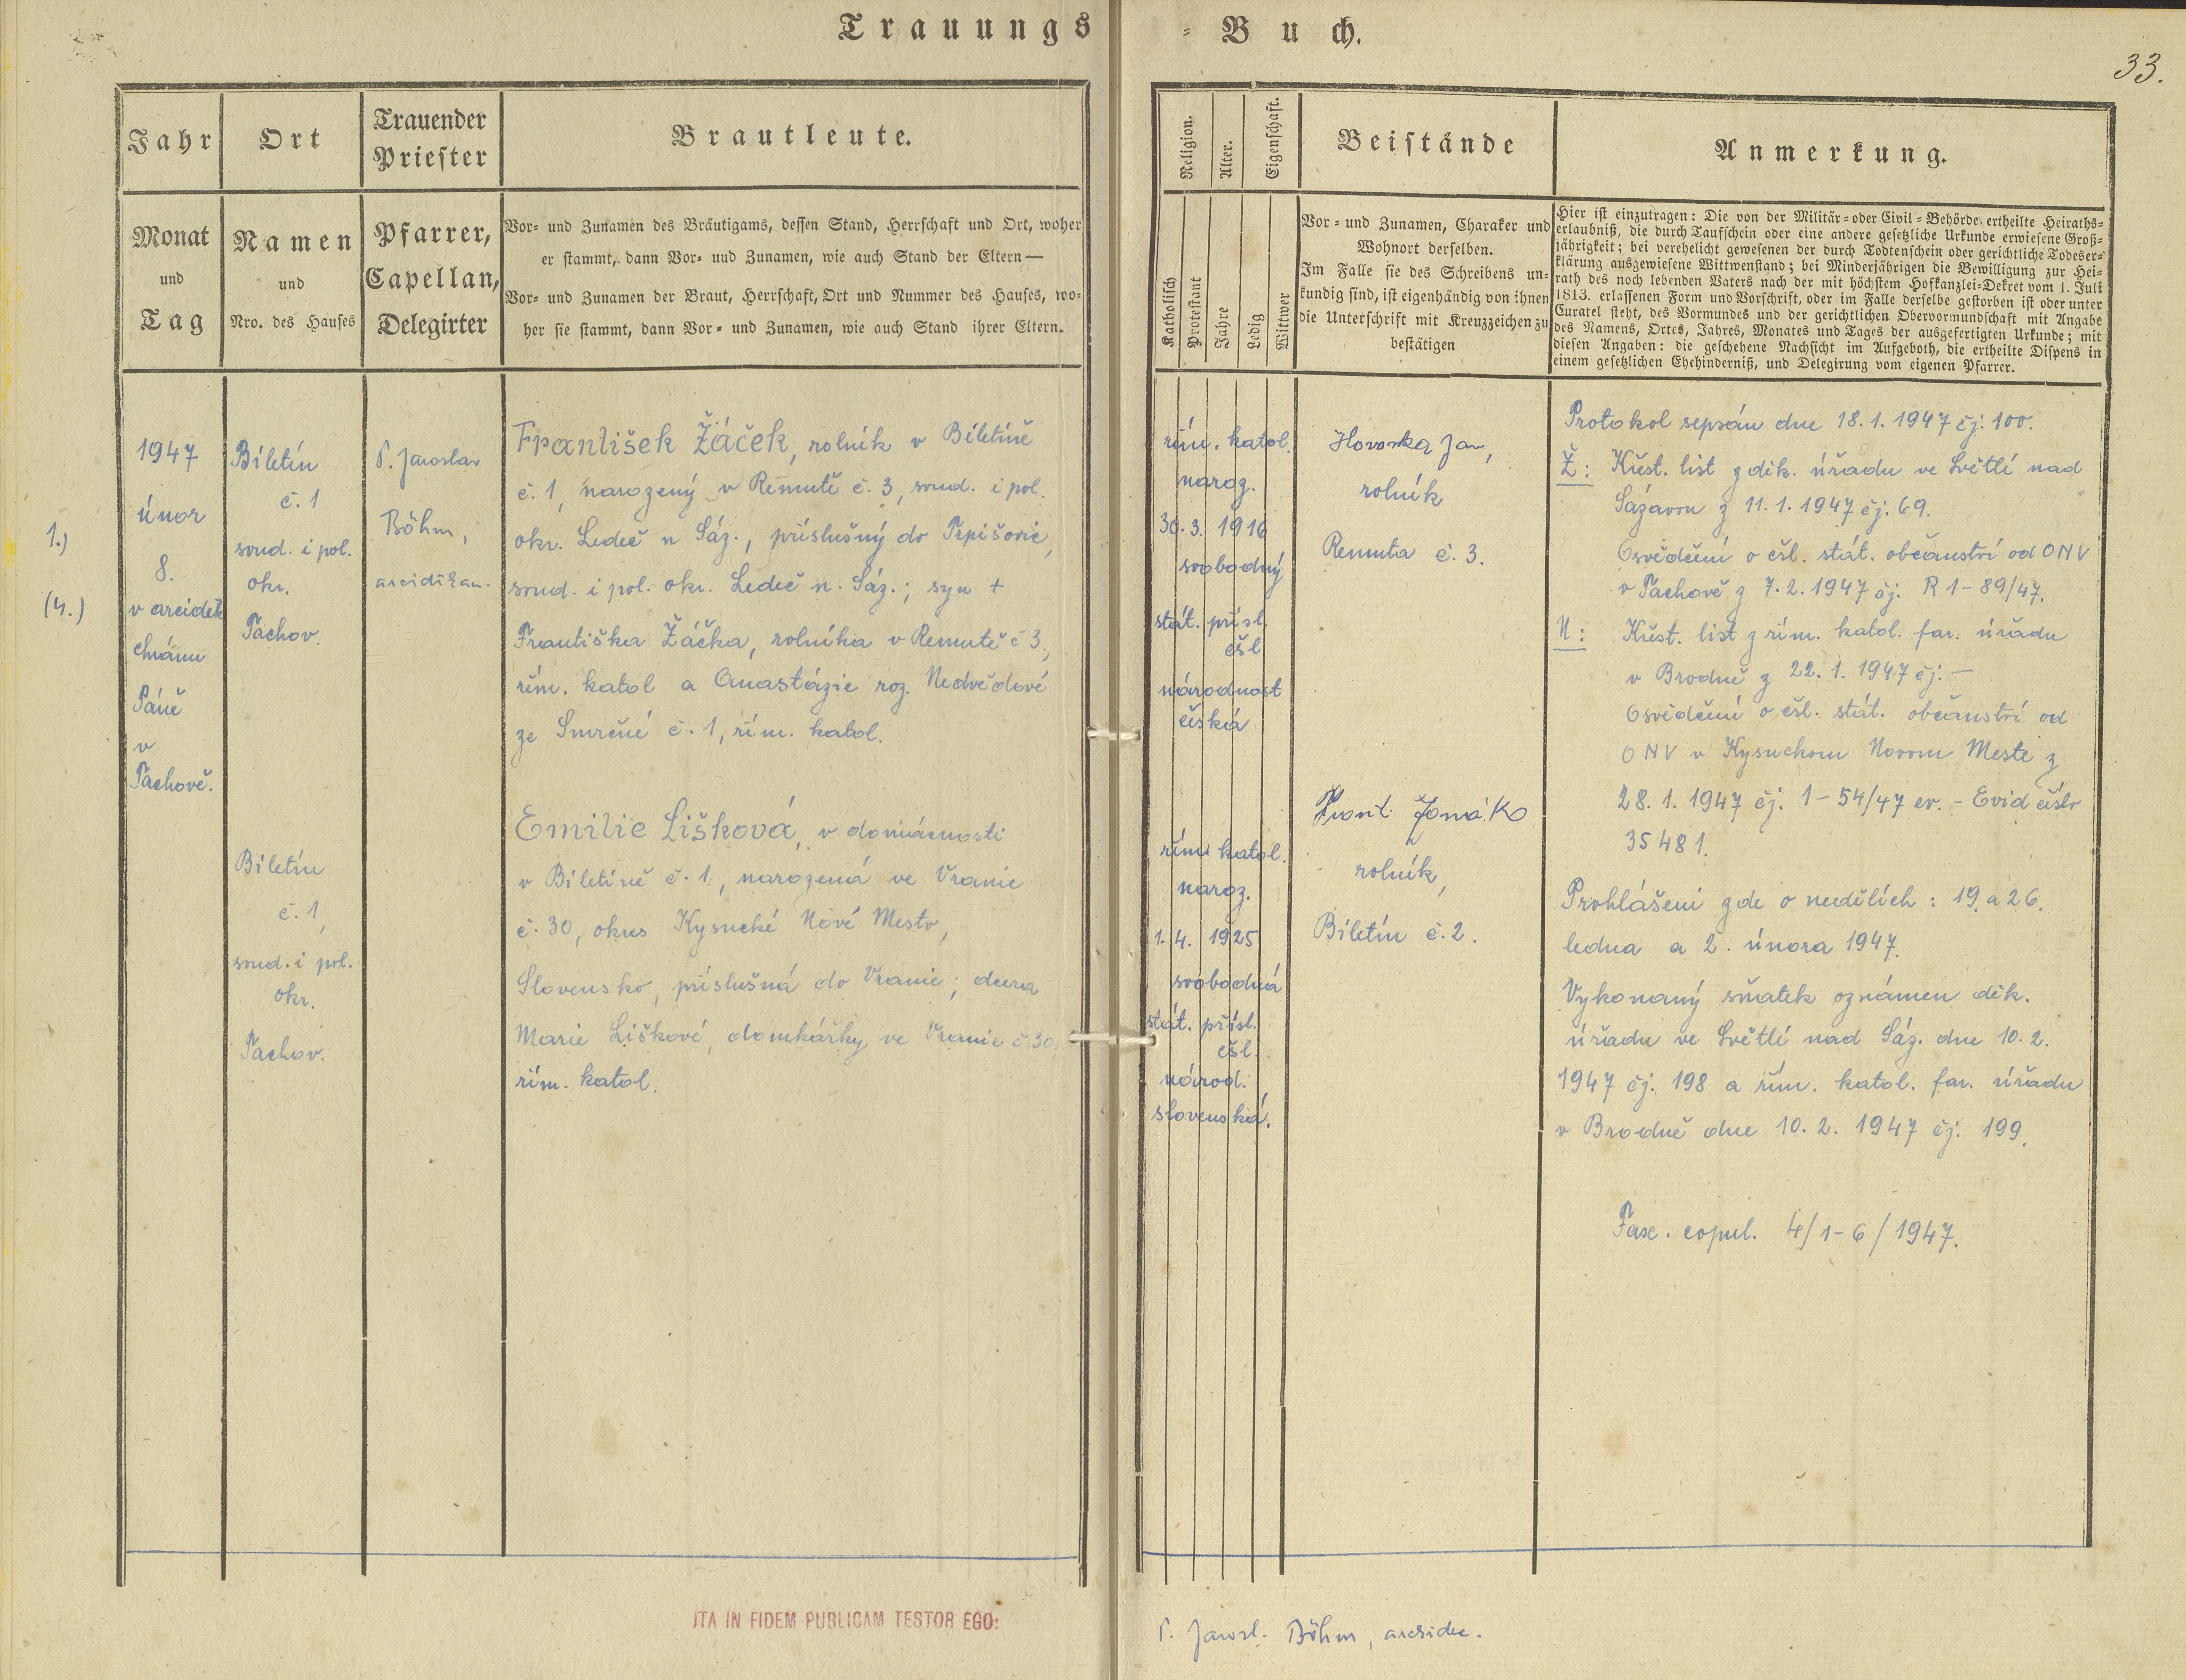 Trauungs = Buch.
33.
Jahr
Ort
Trauender
Priester
Brautleute.
Monat
und
Tag
Namen
und
Nro. des Hauses
Pfarrer,
Capellan,
Delegirter
Vor- und Zunamen des Bräutigams, dessen Stand, Herrschaft und Ort, woher
er stammt, dann Vor- und Zunamen, wie auch Stand der Eltern —
Vor- und Zunamen der Braut, Herrschaft, Ort und Nummer des Hauses, wo-
her sie stammt, dann Vor- und Zunamen, wie auch Stand ihrer Eltern.
1.)
(4.)
1947
únor
8.
v arciděk
chrámu
Páně
v
Tachově.
Biletín
č. 1
soud. i pol.
okr.
Tachov.
P. Jaroslav
Böhm,
arciděkan.
František Žáček, rolník v Biletíně
č. 1, narozený v Řemutě č. 3, soud. i pol.
okr. Ledeč n Sáz., příslušný do Trpišovic,
soud. i pol. okr. Ledeč n. Sáz.; syn +
Františka Žáčka, rolníka v Remutě č 3.,
řím. katol a Anastázie roz. Nedvědové
ze Smrčné č. 1, řím. katol.
Biletín
č. 1,
soud. i pol.
okr.
Tachov.
Emilie Lišková, v domácnosti
v Biletíně č. 1, narozená ve Vranie
č. 30, okres Kysucké Nové Mesto,
Slovensko, příslušná do Vranie; dcera
Marie Liškové, domkářky ve Vranie č 30,
řím. katol.
ITA IN FIDEM PUBLICAM TESTOR EGO:
Religion.
Alter.
Eigenschaft.
Beistände
Anmerkung.
Katholisch
Protestant
Jahre
Ledig
Wittwer
Vor- und Zunamen, Charaker und
Wohnort derselben.
Im Falle sie des Schreibens un-
kundig sind, ist eigenhändig von ihnen
die Unterschrift mit Kreuzzeichen zu
bestätigen
Hier ist einzutragen: Die von der Militär- oder Civil-Behörde ertheilte Heiraths-
erlaubniß, die durch Taufschein oder eine andere gesetzliche Urkunde erwiesene Groß-
jährigkeit; bei verehelicht gewesenen der durch Todtenschein oder gerichtliche Todeser-
klärung ausgewiesene Wittwenstand; bei Minderjährigen die Bewilligung zur Hei-
rath des noch lebenden Vaters nach der mit höchstem Hofkanzlei-Dekret vom 1. Juli
1813. erlassenen Form und Vorschrift, oder im Falle derselbe gestorben ist oder unter
Curatel steht, des Vormundes und der gerichtlichen Obervormundschaft mit Angabe
des Namens, Ortes, Jahres, Monates und Tages der ausgefertigten Urkunde; mit
diesen Angaben: die geschehene Nachsicht im Aufgeboth, die ertheilte Dispens in
einem gesetzlichen Ehehinderniß, und Delegirung vom eigenen Pfarrer.
řím. katol.
naroz.
30. 3. 1916
svobodný
stát. přísl.
čsl
národnost
česká
Hovorka Jan,
rolník
Remuta č. 3.
řím. katol.
naroz.
1. 4. 1925
svobodná
stát. přísl.
čsl.
národ.
slovenská.
rolník,
Biletín č. 2.
Protokol sepsán dne 18. 1. 1947 čj: 100.
Ž: Křest. list z děk. úřadu ve Světlí nad
Sázavou z 11. 1. 1947 čj: 69.
Osvědčení o čsl. stát. občanství od ONV
v Tachově z 7. 2. 1947 čj. R 1-89/47.
N: Křest. list z řím. katol. far. úřadu
v Brodně z 22. 1. 1947 čj: —
Osvědčení o čsl. stát. občanství od
ONV v Kysuckom Novom Meste z
28. 1. 1947 čj. 1-54/47 ev. - Evid číslo
35481.
Prohlášeni zde o nedělích: 19. a 26.
ledna a 2. února 1947.
Vykonaný sňatek oznámen děk.
úřadu ve Světlí nad Sáz. dne 10. 2.
1947 čj. 198 a řím. katol. far. úřadu
v Brodně dne 10. 2. 1947 čj. 199.
Fasc. copul. 4/1-6/1947.
P. Jarosl. Böhm, archidec.